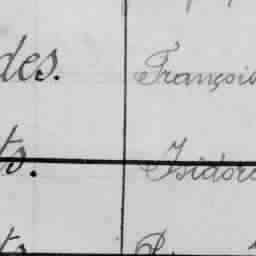 des. François
ts. Isidore
ts